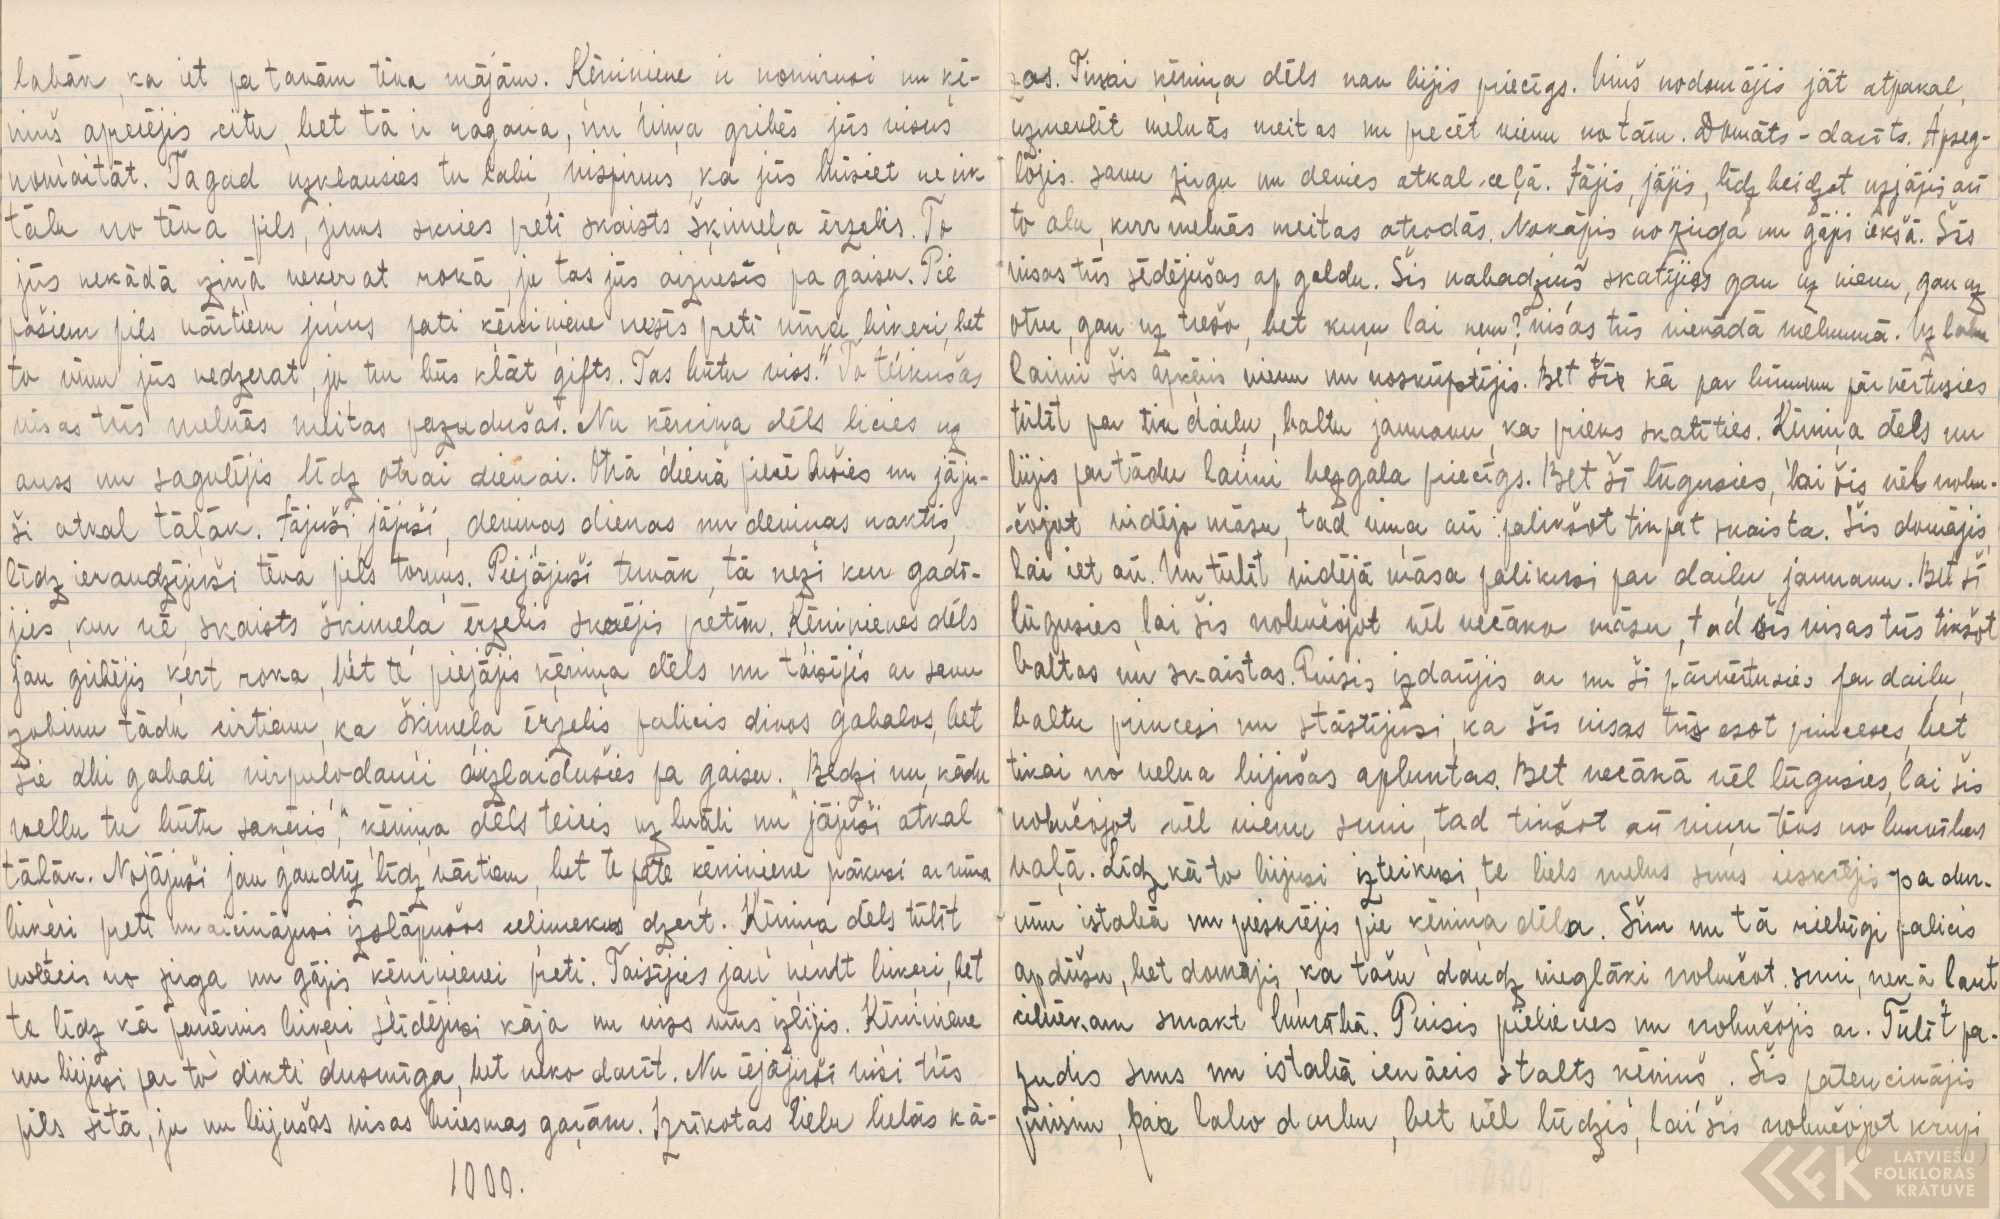 labān, ka iet pa tavām tēva mājām. Ķēniniene ir nomirusi un ķē-
niņš aprecējis citu, bet tā ir ragana, nu viņa gribēs jūs visus
nomaitāt. Tagad uzklausies tu labi, vispirms, ka jūs būsiet ne cik
tālu no tēva pils, jums skries pretī skaists šķimeļa ērzelis. To
jūs nekādā ziņā neķerat rokā, jo tas jūs aiznesīs pa gaisu. Pie
pašiem pils vārtiem jums pati ķēniniene nesīs pretī vīna biķeri, bet
to vīnu jūs nedzerat, jo tur būs klāt ģifts. Tas būtu viss." To teikušas
visas trīs melnās meitas pazudušas. Nu ķēniņa dēls licies uz
auss un sagulējis līdz otrai dienai. Otrā dienā piecēlušies un jāju-
ši atkal tālāk. Jājuši, jājuši, deviņas dienas un deviņas naktis,
līdz ieraudzījuši tēva pils torņus. Piejājuši tuvāk, tā neži kur gadī-
jies, kur nē, skaists šķimeļa ērzelis skrējis pretim. Ķēninienes dēls
jau gribējis ķert roka, bet te piejājis ķēniņa dēls un taisījis ar savu
zobinu tādu cirtienu, ka šķimeļa ērzelis palicis divos gabalos, bet
šie abi gabali virpuļodami aizlaidušies pa gaisu. "Redzi nu, kādu
vellu tu būtu saķēris," ķēniņa dēls teicis uz brāli un jājuši atkal
tālāk. Nojājuši jau gandrīz līdz vārtiem, bet te pate ķēniniene nākusi ar vīna
biķeri pretī un aicinājusi izslāpušos celiniekus dzert. Ķēniņa dēls tūlīt
nolēcis no zirga un gājis ķēninienei pretī. Taisījies jau ņemt biķeri, bet
te līdz kā paņēmis biķeri slīdējusi kāja un viss vīns izlijis. Ķēniniene
nu bijusi par to dikti dusmīga, bet neko darīt. Nu iejājuši visi trīs
pils sētā, ju nu bijušas visas briesmas gaŗām. Izrīkotas lielu lielās kā-
1000.
zas. Tikai ķēniņa dēls nav bijis priecīgs. Viņš nodomājis jāt atpakaļ,
uzmeklēt melnās meitas un precēt vienu no tām. Domāts - darīts. Apseg-
lojis savu zirgu un devies atkal ceļā. Jājis, jājis, līdz beidzot uzjājis arī
to alu, kurr melnās meitas atrodās. Nokāpis no zirga un gājis iekšā. Šīs
visas trīs sēdējušas ap galdu. Šis nabadziņš skatījies gan uz vienu, gan uz
otru, gan uz trešo, bet kuŗu lai ņem? visas trīs vienādā melnumā. Uz labu
laimi šis apķēris vienu un noskūpstījis. Bet šīe kā par brīnumu pārvērtusies
tūlīt par tik daiļu, baltu jaunavu, ka prieks skatīties. Ķēniņa dēls nu
bijis par tādu laimi bezgala priecīgs. Bet šī lūgusies, lai šis vēl nobu-
čojot vidējo māsu, tad viņa arī palikšot tikpat skaista. Šis domājis,
lai iet arī. Un tūlīt vidējā māsa palikusi par daiļu jaunavu. Bet šī
lūgusies, lai šis nobučojot vēl vecāko māsu, tad šīs visas trīs tikšot
baltas un skaistas. Puisis izdarījis ar nu šī pārvērtusies par daiļu,
baltu princesi un stāstījusi, ka šīs visas trīs esot princeses, bet
tikai no velna bijušas apburtas. Bet vecākā vēl lūgusies, lai šis
nobučojot vēl vienu suni, tad tikšot arī viņu tēvs no burvības
vaļā. Līdz kā to bijusi izteikusi, te liels melns suns ieskrējis pa dur-
vīm istabā un pieskrējis pie ķēniņa dēla. Šim nu tā riebīgi palicis
ap dūšu, bet domājis, ka taču daudz vieglāki nobučot suni, nekā laut
cilvēkam smakt burvībā. Puisis pieliecies un nobučojis ar. Tūlīt pa-
zudis suns un istabā ienācis stalts ķēniņš. Šis patencinājis
puisim, par labo darbu, bet vēl lūdzis, lai šis nobučojot krupi,
LATVIEŠU
FOLKLORAS
KRĀTUVE